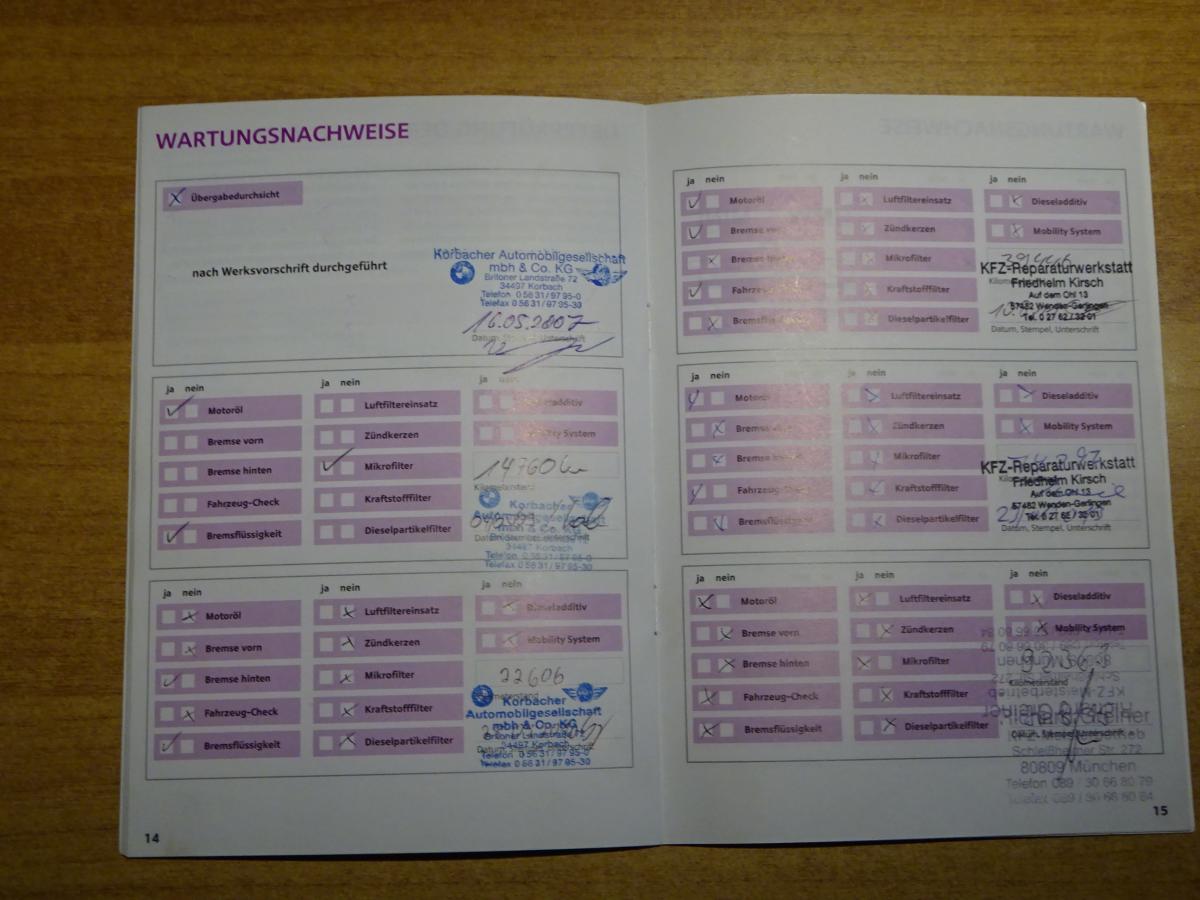 WARTUNGSNACHWEISE
Übergabedurchsicht
nach Werksvorschrift durchgeführt
Korbacher Automobilgesellschaft
mbh & Co. KG
Briloner Landstraße 72
34497 Korbach
Telefon 0 56 31 / 97 95-0
Telefax 0 56 31 / 97 95-30
16.05.2007
Datum, Stempel, Unterschrift
ja nein
ja nein
ja nein
Motoröl
Luftfiltereinsatz
Dieseladditiv
Bremse vorn
Zündkerzen
Mobility System
Bremse hinten
Mikrofilter
14760 km
Kilometerstand
Fahrzeug-Check
Kraftstofffilter
Korbacher
Automobilgesellschaft
mbh & Co. KG
Bremsflüssigkeit
Dieselpartikelfilter
34497 Korbach
Telefon 0 56 31 / 97 95-0
Telefax 0 56 31 / 97 95-30
ja nein
ja nein
ja nein
Motoröl
Luftfiltereinsatz
Dieseladditiv
Bremse vorn
Zündkerzen
Mobility System
Bremse hinten
Mikrofilter
22606
Fahrzeug-Check
Kraftstofffilter
Korbacher
Automobilgesellschaft
mbh & Co. KG
Briloner Landstraße 72
34497 Korbach
Telefon 0 56 31 / 97 95-0
Telefax 0 56 31 / 97 95-30
Bremsflüssigkeit
Dieselpartikelfilter
14
ja nein
ja nein
ja nein
Motoröl
Luftfiltereinsatz
Dieseladditiv
Bremse vorn
Zündkerzen
Mobility System
Bremse hinten
Mikrofilter
KFZ-Reparaturwerkstatt
Friedhelm Kirsch
Auf dem Ohl 13
57482 Wenden-Gerlingen
Tel. 0 27 62 / 32 01
Fahrzeug-Check
Kraftstofffilter
Bremsflüssigkeit
Dieselpartikelfilter
Datum, Stempel, Unterschrift
ja nein
ja nein
ja nein
Motoröl
Luftfiltereinsatz
Dieseladditiv
Bremse vorn
Zündkerzen
Mobility System
Bremse hinten
Mikrofilter
KFZ-Reparaturwerkstatt
Friedhelm Kirsch
Auf dem Ohl 13
57482 Wenden-Gerlingen
Tel. 0 27 62 / 32 01
Fahrzeug-Check
Kraftstofffilter
Bremsflüssigkeit
Dieselpartikelfilter
Datum, Stempel, Unterschrift
ja nein
ja nein
ja nein
Motoröl
Luftfiltereinsatz
Dieseladditiv
Bremse vorn
Zündkerzen
Mobility System
Bremse hinten
Mikrofilter
Kilometerstand
Fahrzeug-Check
Kraftstofffilter
Bremsflüssigkeit
Dieselpartikelfilter
Richard Greiner
Schleißheimer Str. 272
80809 München
Telefon 089 / 30 66 80 79
Telefax 089 / 30 66 80 84
15